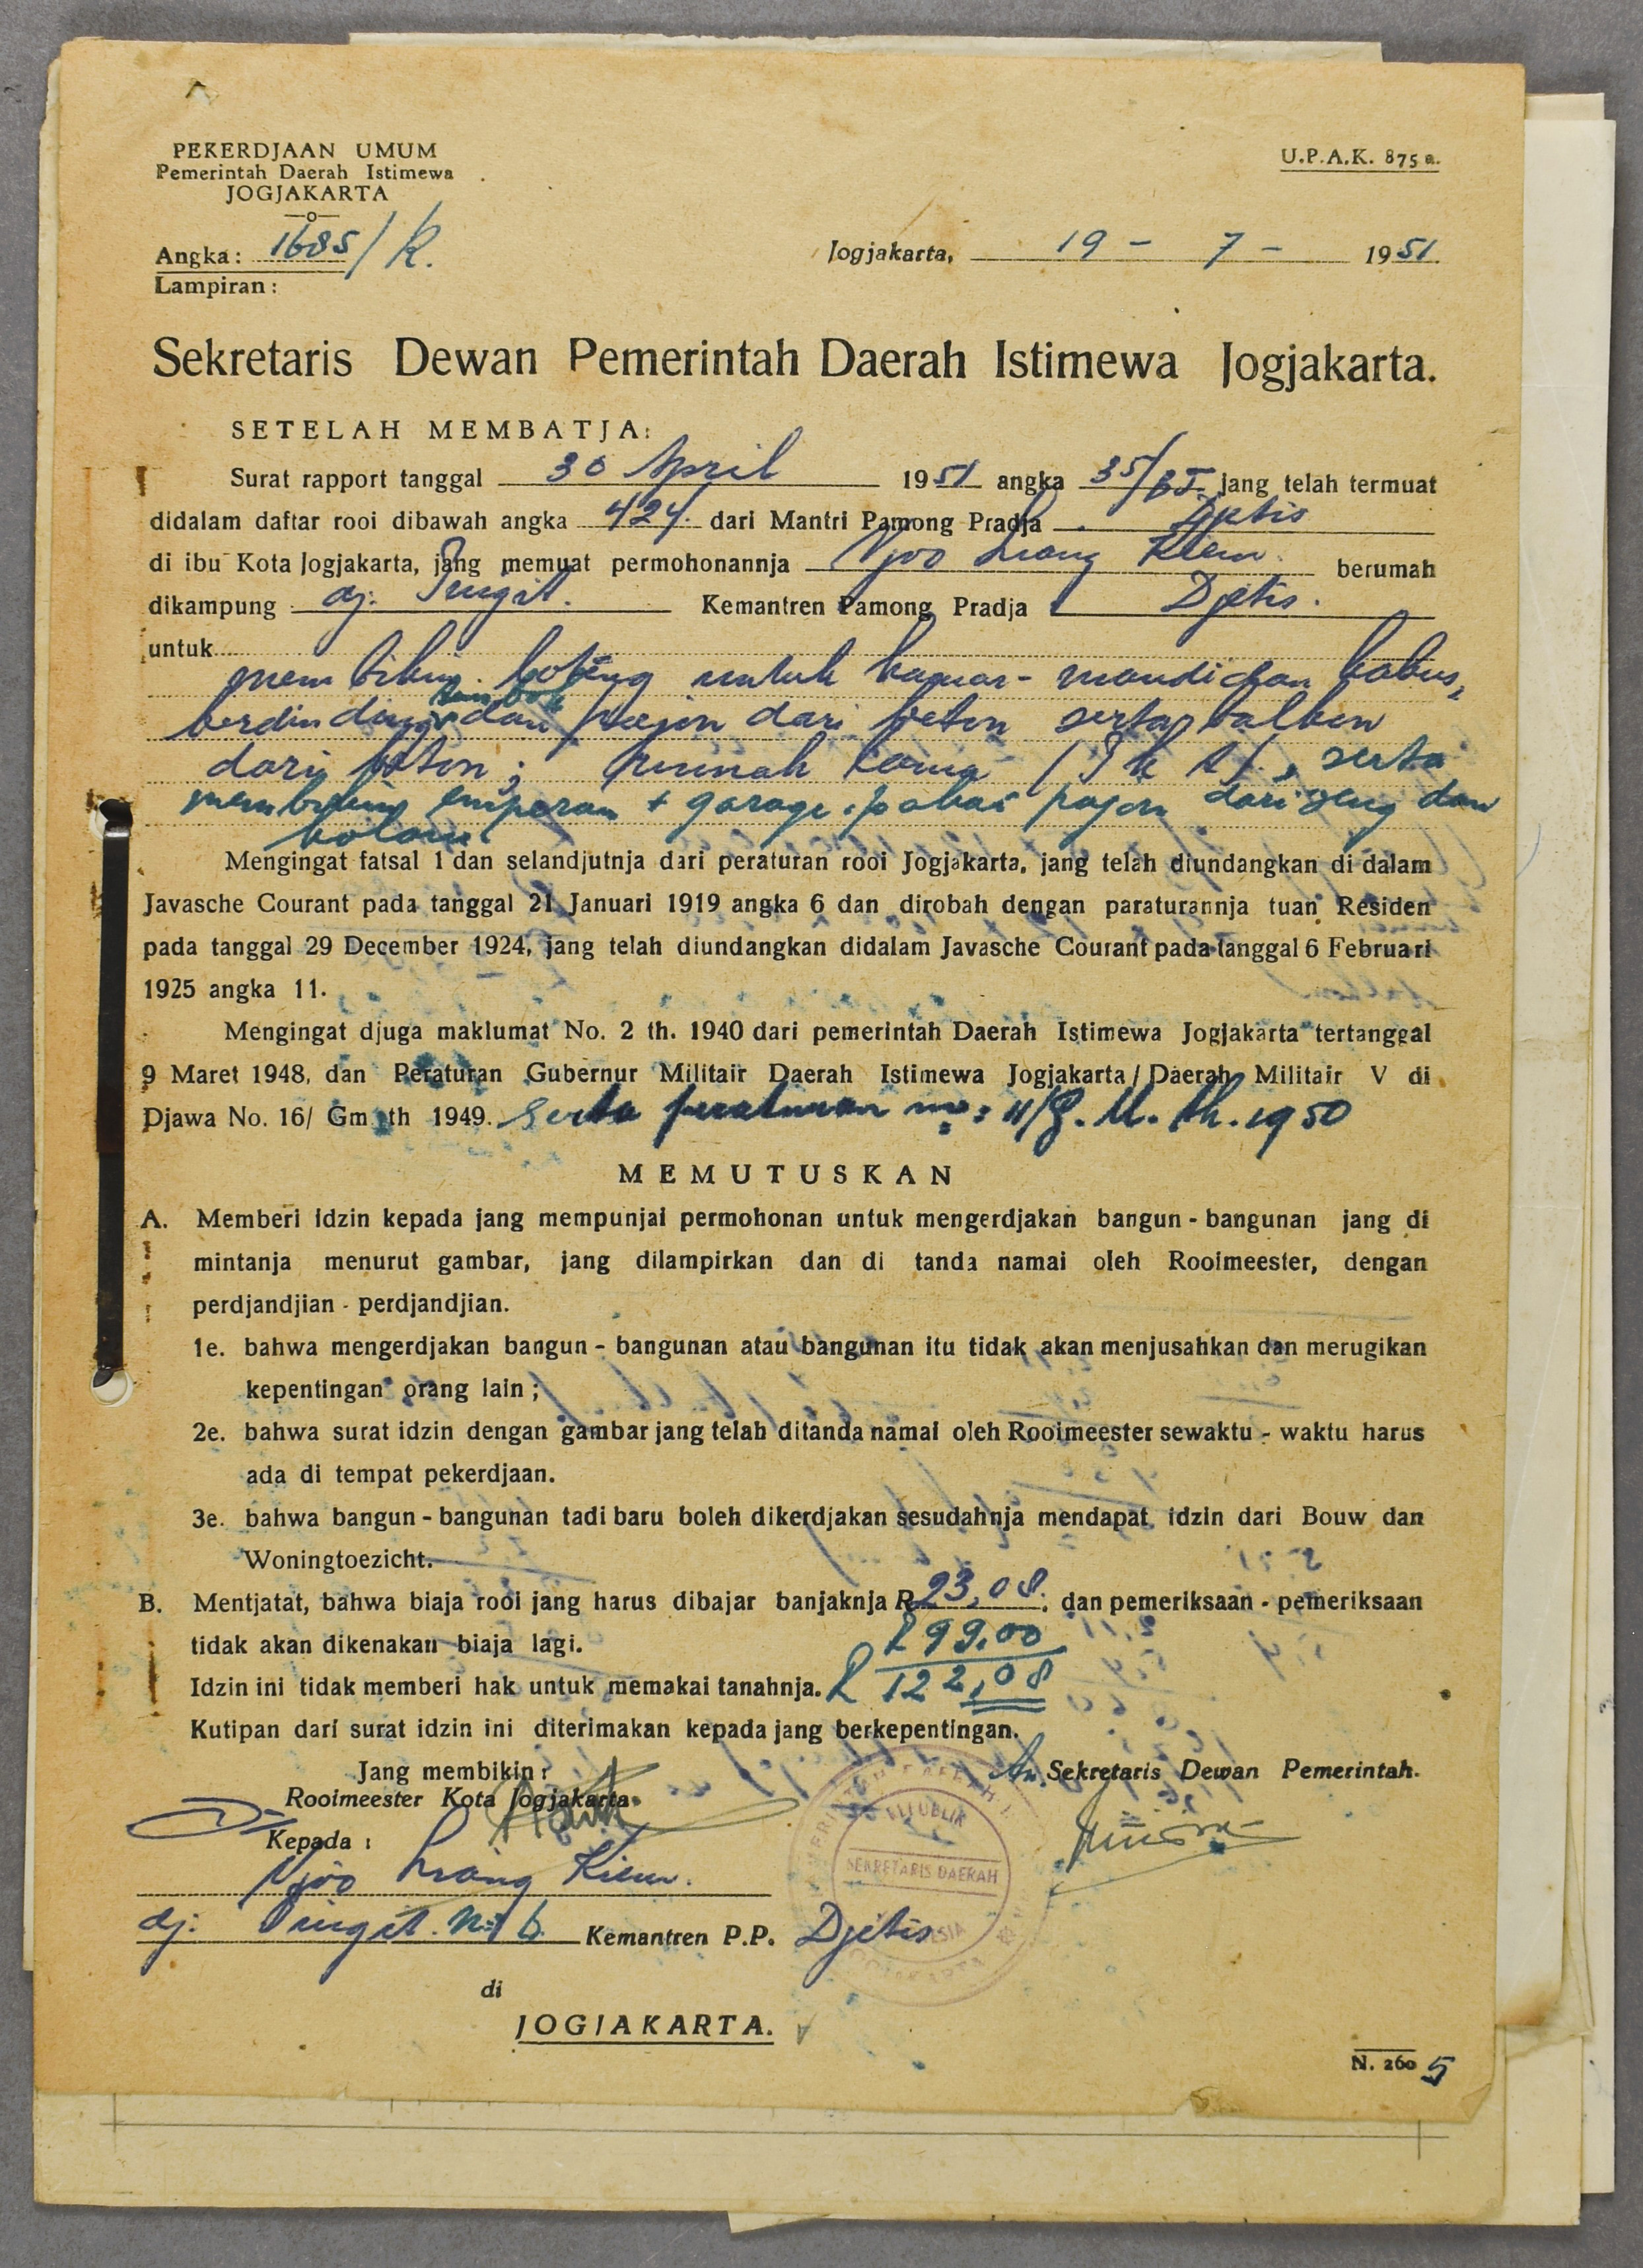 PEKERDJAAN UMUM
Pemerintah Daerah Istimewa
JOGJAKARTA
U.P.A.K. 875 a.
Angka: 1685/R.
Jogjakarta, 19 - 7 - 1951
Lampiran:
Sekretaris Dewan Pemerintah Daerah Istimewa Jogjakarta.
SETELAH MEMBATJA:
Surat rapport tanggal 30 April 1951 angka 35/BI jang telah termuat
didalam daftar rooi dibawah angka 424 dari Mantri Pamong Pradja Djetis
di ibu Kota Jogjakarta, jang memuat permohonannja Njoo Liang Kiem berumah
dikampung dj. Pingit. Kemantren Pamong Pradja Djetis.
untuk
membikin untuk kamar-mandi dan kakus,
tembok
berdinding dan pajon dari beton serta balken
dari beton; rumah lama serta
membikin emperan + garage pakai pajon dari seng dan
Mengingat fatsal 1 dan selandjutnja dari peraturan rooi Jogjakarta, jang telah diundangkan di dalam
Javasche Courant pada tanggal 21 Januari 1919 angka 6 dan dirobah dengan paraturannja tuan Residen
pada tanggal 29 December 1924, jang telah diundangkan didalam Javasche Courant pada tanggal 6 Februari
1925 angka 11.
Mengingat djuga maklumat No. 2 th. 1940 dari pemerintah Daerah Istimewa Jogjakarta tertanggal
9 Maret 1948, dan Peraturan Gubernur Militair Daerah Istimewa Jogjakarta / Daerah Militair V di
Djawa No. 16/ Gm th 1949. serta peraturan no: 11/g. M. th. 1950
MEMUTUSKAN
A. Memberi idzin kepada jang mempunjai permohonan untuk mengerdjakan bangun - bangunan jang di
mintanja menurut gambar, jang dilampirkan dan di tanda namai oleh Rooimeester, dengan
perdjandjian - perdjandjian.
1e. bahwa mengerdjakan bangun - bangunan atau bangunan itu tidak akan menjusahkan dan merugikan
kepentingan orang lain ;
2e. bahwa surat idzin dengan gambar jang telah ditanda namai oleh Rooimeester sewaktu - waktu harus
ada di tempat pekerdjaan.
3e. bahwa bangun - bangunan tadi baru boleh dikerdjakan sesudahnja mendapat idzin dari Bouw dan
Woningtoezicht.
B. Mentjatat, bahwa biaja rooi jang harus dibajar banjaknja R 23,08. dan pemeriksaan - pemeriksaan
tidak akan dikenakan biaja lagi. R 99,00
Idzin ini tidak memberi hak untuk memakai tanahnja. R 122,08
Kutipan dari surat idzin ini diterimakan kepada jang berkepentingan.
Jang membikin :
An. Sekretaris Dewan Pemerintah.
Rooimeester Kota Jogjakarta
REPUBLIK
SEKRETARIS DAERAH
Kepada :
Njoo Liang Kiem.
dj. Pingit. No. 6 Kemantren P.P. Djetis
di
JOGJAKARTA.
N. 260 5